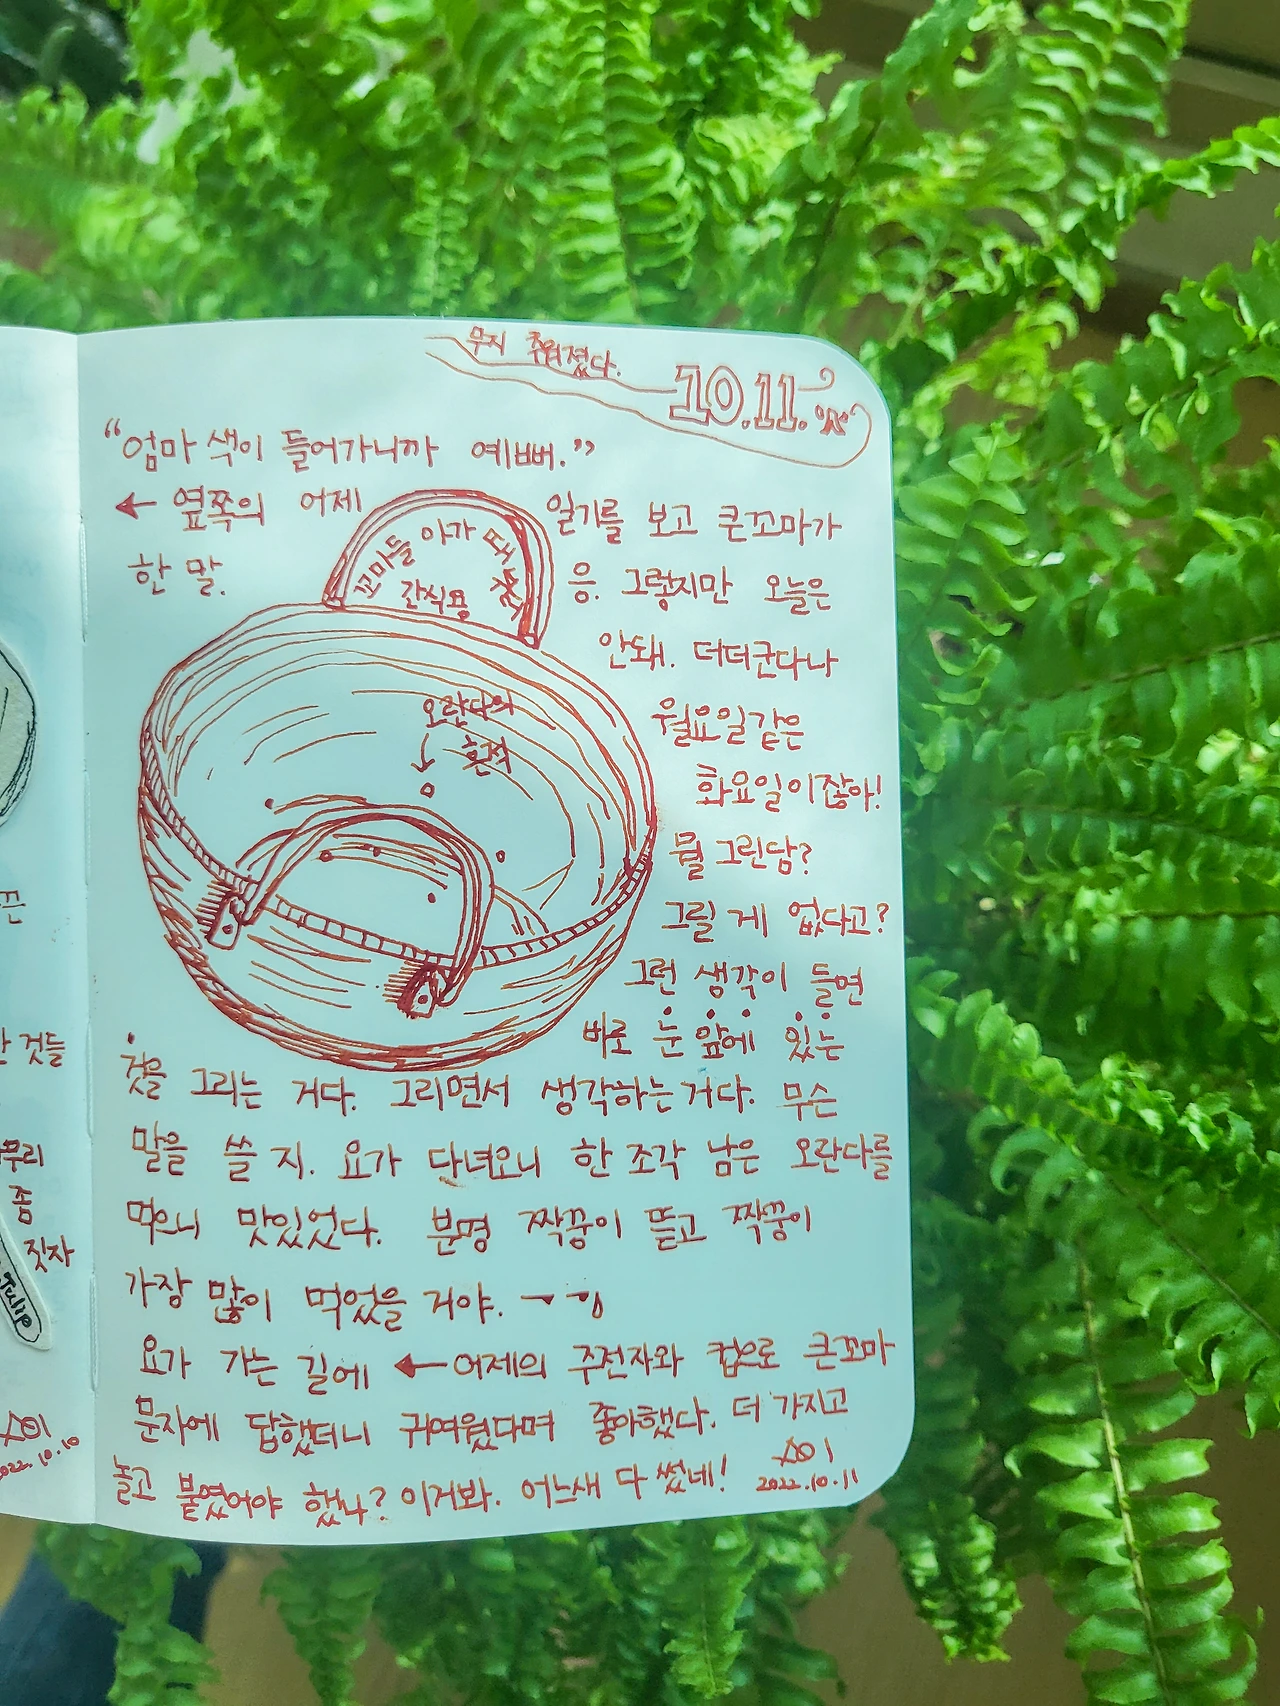 무지 추워졌다.
10.11.
"엄마 색이 들어가니까 예뻐."
← 옆쪽의 어제 일기를 보고 큰꼬마가
한 말.
응. 그렇지만 오늘은
안돼. 더더군다나
월요일같은
화요일이잖아!
뭘 그린담?
그릴 게 없다고?
그런 생각이 들면
바로 눈 앞에 있는
것을 그리는 거다. 그리면서 생각하는거다. 무슨
말을 쓸 지. 요가 다녀오니 한 조각 남은 오란다를
먹으니 맛있었다. 분명 짝꿍이 뜯고 짝꿍이
가장 많이 먹었을 거야.
요가 가는 길에 ← 어제의 주전자와 컵으로 큰꼬마
문자에 답했더니 귀여웠다며 좋아했다. 더 가지고
놀고 붙였어야 했나? 이거봐. 어느새 다 썼네!
2022.10.11
꼬마들 아가 때
간식용
오란다의
흔적
것들
무리
좀
짓자
Tulip
2022.10.10